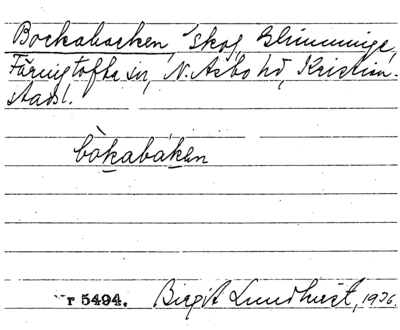 Bockabacken, skog, Glimminge,
Färingtofta sn, N. Åsbo hd, Kristian-
stads l.
bòkabákɘn
r 5494. Birgit Lundkvist, 1936.